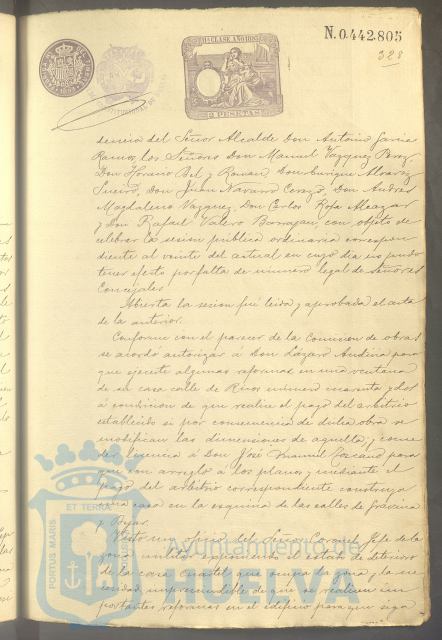 11ª CLASE AÑO 1895
N.0.442.805
328
2 PESETAS
dencia del Señor Alcalde Don Antonio Garcia
Ramos, los Señores Don Manuel Vazquez Perez,
Don Horacio Bel y Roman, Don Enrique Alvarez
Sueiro, Don Juan Navarro Don Andrés
Magdaleno Vazquez, Don Carlos Roja Alcayar
y Don Rafael Valero Barragan, con objeto de
celebrar la sesion publica ordinaria correspon
diente al veinte del actual en cuyo dia no pudo
tener efecto por falta de numero legal de señores
Concejales
Abierta la sesion fué leida y aprobada el acta
de la anterior.
Conforme con el parecer de la Comision de obras
se acordó autorizar á Don Lázaro para
que ejecute algunas reformas en una ventana
de su casa calle de Rico numero y dos
á condicion de que realice el pago del arbitrio
establecido si por consecuencia de dicha obra se
modifican las dimensiones de aquella; y conce
der licencia á Don José Manuel para
que con arreglo á los planos y mediante el
pago del arbitrio correspondiente construya
una casa en la esquina de las calles de Gravina
y Bejar.
Visto un oficio del Señor Coronel Jefe de la
zona militar exponiendo el estado de deterioro
de la casa cuartel que ocupa la zona y la ne
cesidad imprescindible de que se realicen im
portantes reformas en el edificio para que siga
PORTUS MARIS ET TERRAE
Ayuntamiento de
HUELVA